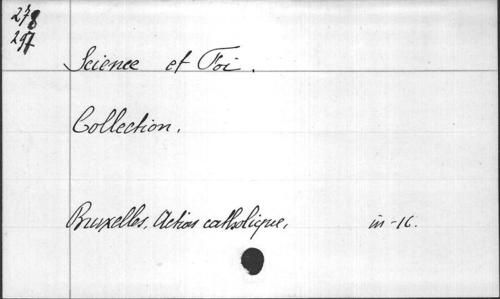 278
297
Science et Foi.
Collection.
Bruxelles, Action catholique, in-16.